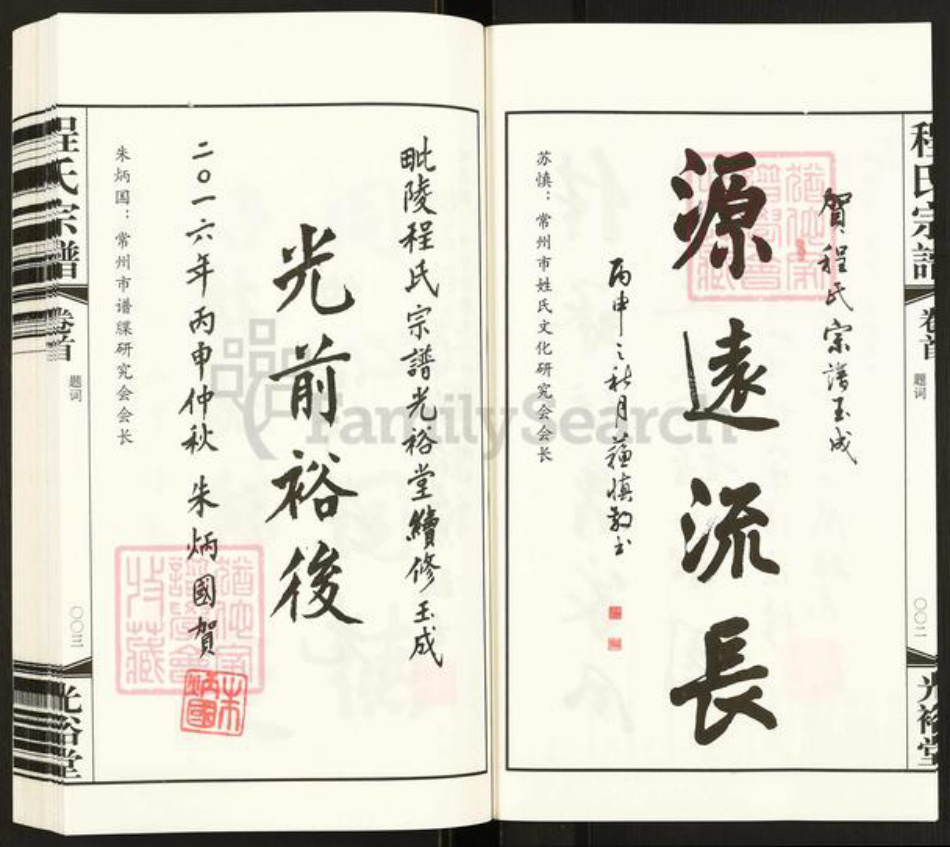 程氏宗譜
卷首
题词
〇〇二
光裕堂
賀程氏宗譜玉成
源遠流長
丙申之秋月蘇慎敬书
苏慎：常州市姓氏文化研究会会长
毗陵程氏宗譜光裕堂續修玉成
光前裕後
二〇一六年丙申仲秋 朱炳國賀
朱炳國
朱炳国：常州市谱牒研究会会长
程氏宗譜
卷首
题词
〇〇三
光裕堂
FamilySearch